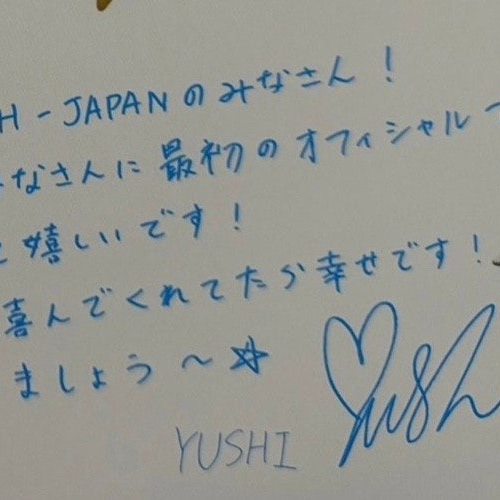 H-JAPANのみなさん!
なさんに最初のオフィシャル
嬉しいです!
喜んでくれてたら幸せです!
ましょう〜☆
YUSHI
Yushi